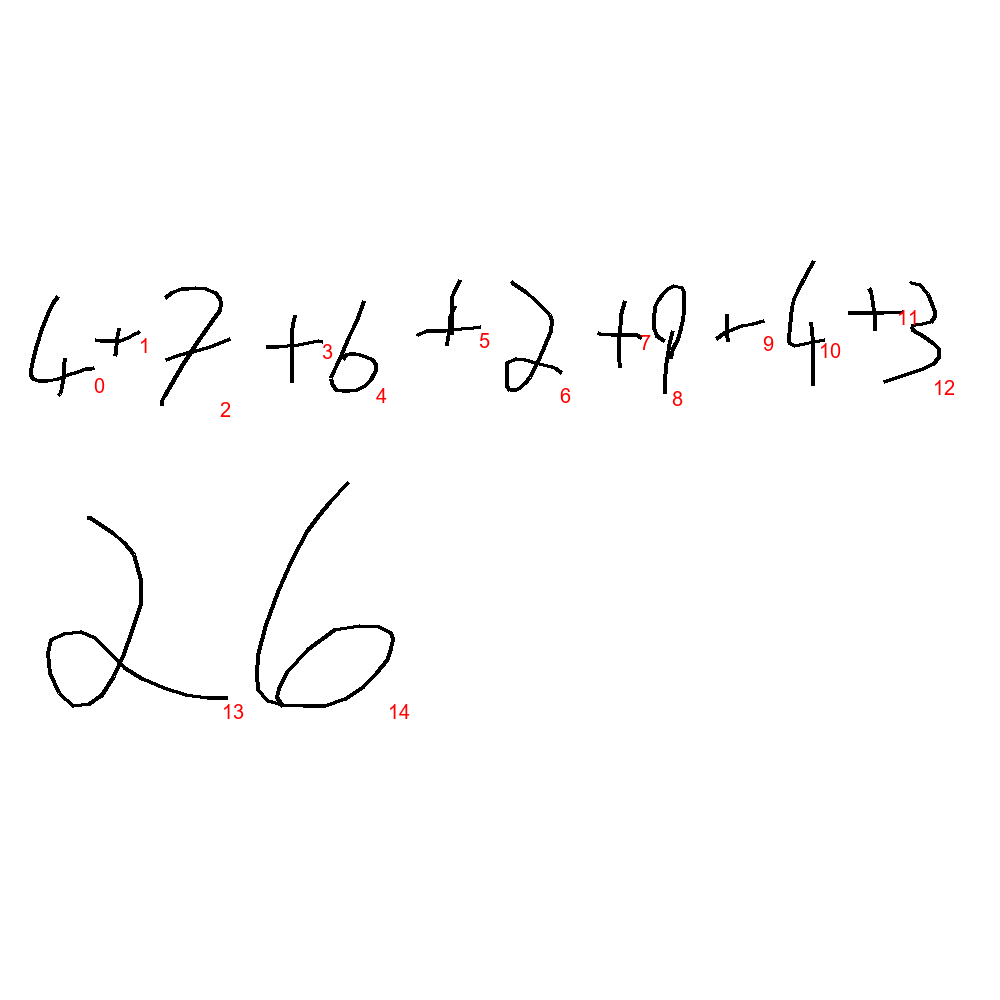 4+7+6+2+9+4+3
26
0 1 2 3 4 5 6 7 8 9 10 11 12
13 14